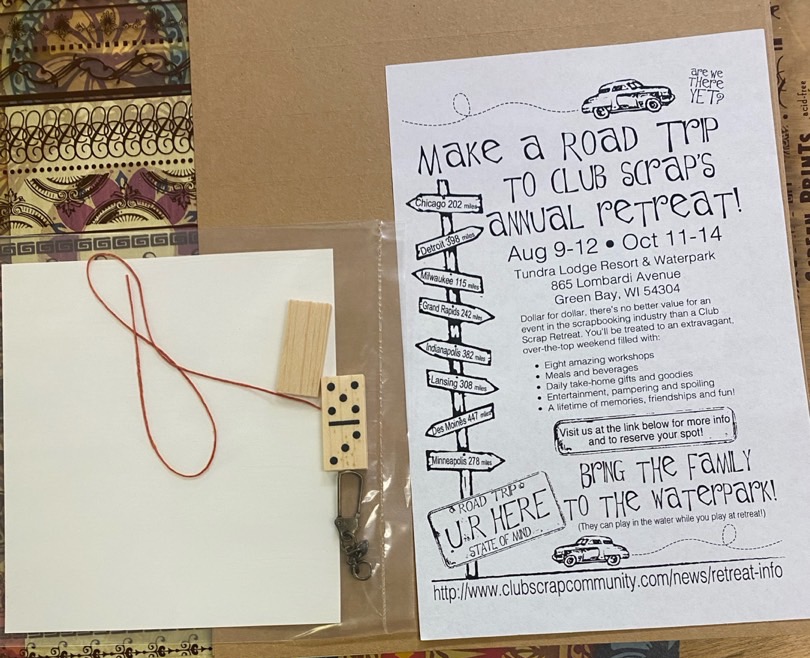 are we
THere
YET?
Make a ROAD TRIP
TO CLUB SCRAP'S
ANNUAL reTreaT!
Aug 9-12 • Oct 11-14
Tundra Lodge Resort & Waterpark
865 Lombardi Avenue
Green Bay, WI 54304
Dollar for dollar, there's no better value for an
event in the scrapbooking industry than a Club
Scrap Retreat. You'll be treated to an extravagant,
over-the-top weekend filled with:
• Eight amazing workshops
• Meals and beverages
• Daily take-home gifts and goodies
• Entertainment, pampering and spoiling
• A lifetime of memories, friendships and fun!
Visit us at the link below for more info
and to reserve your spot!
Chicago 202 miles
Detroit 398 miles
Milwaukee 115 miles
Grand Rapids 242 miles
Indianapolis 382 miles
Lansing 308 miles
Des Moines 447 miles
Minneapolis 278 miles
BRING THE FAMILY
TO THE WATERPARK!
(They can play in the water while you play at retreat!)
ROAD TRIP
U R HERE
STATE OF MIND
http://www.clubscrapcommunity.com/news/retreat-info
acid-free